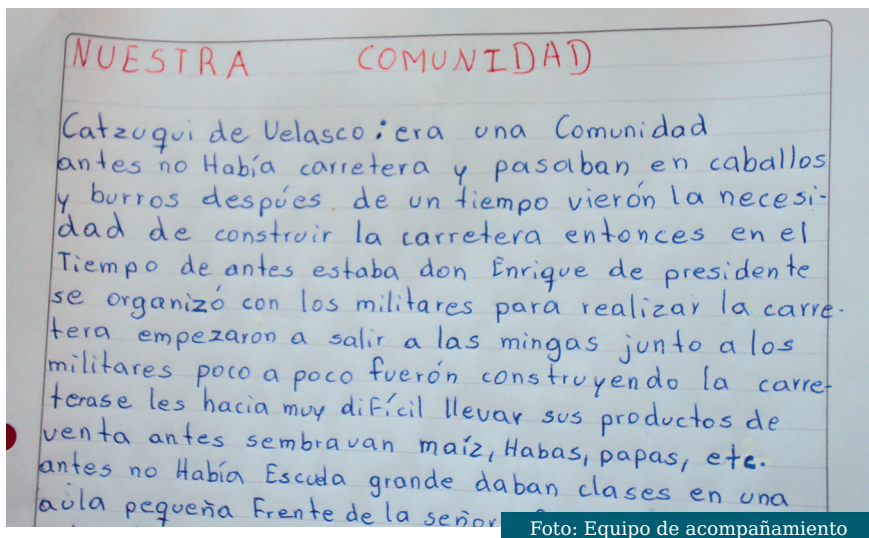 NUESTRA COMUNIDAD
Catzuqui de Velasco: era una Comunidad
antes no Había carretera y pasaban en caballos
y burros despúes de un tiempo vierón la necesi-
dad de construir la carretera entonces en el
Tiempo de antes estaba don Enrique de presidente
se organizó con los militares para realizar la carre-
tera empezaron a salir a las mingas junto a los
militares poco a poco fuerón construyendo la carre-
terase les hacia muy difícil llevar sus productos de
venta antes sembravan maíz, Habas, papas, etc.
antes no Había Escuela grande daban clases en una
aula pequeña Frente de la señor
Foto: Equipo de acompañamiento